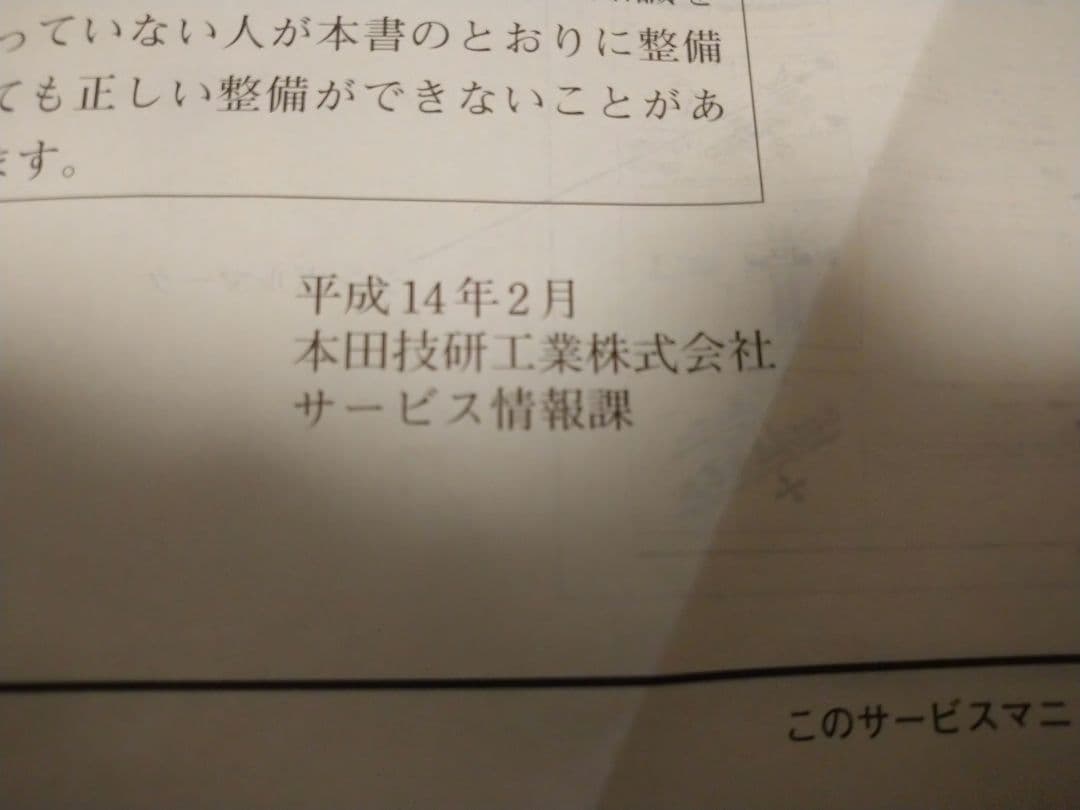 っていない人が本書のとおりに整備
ても正しい整備ができないことがあ
ます。
平成14年2月
本田技研工業株式会社
サービス情報課
このサービスマニ